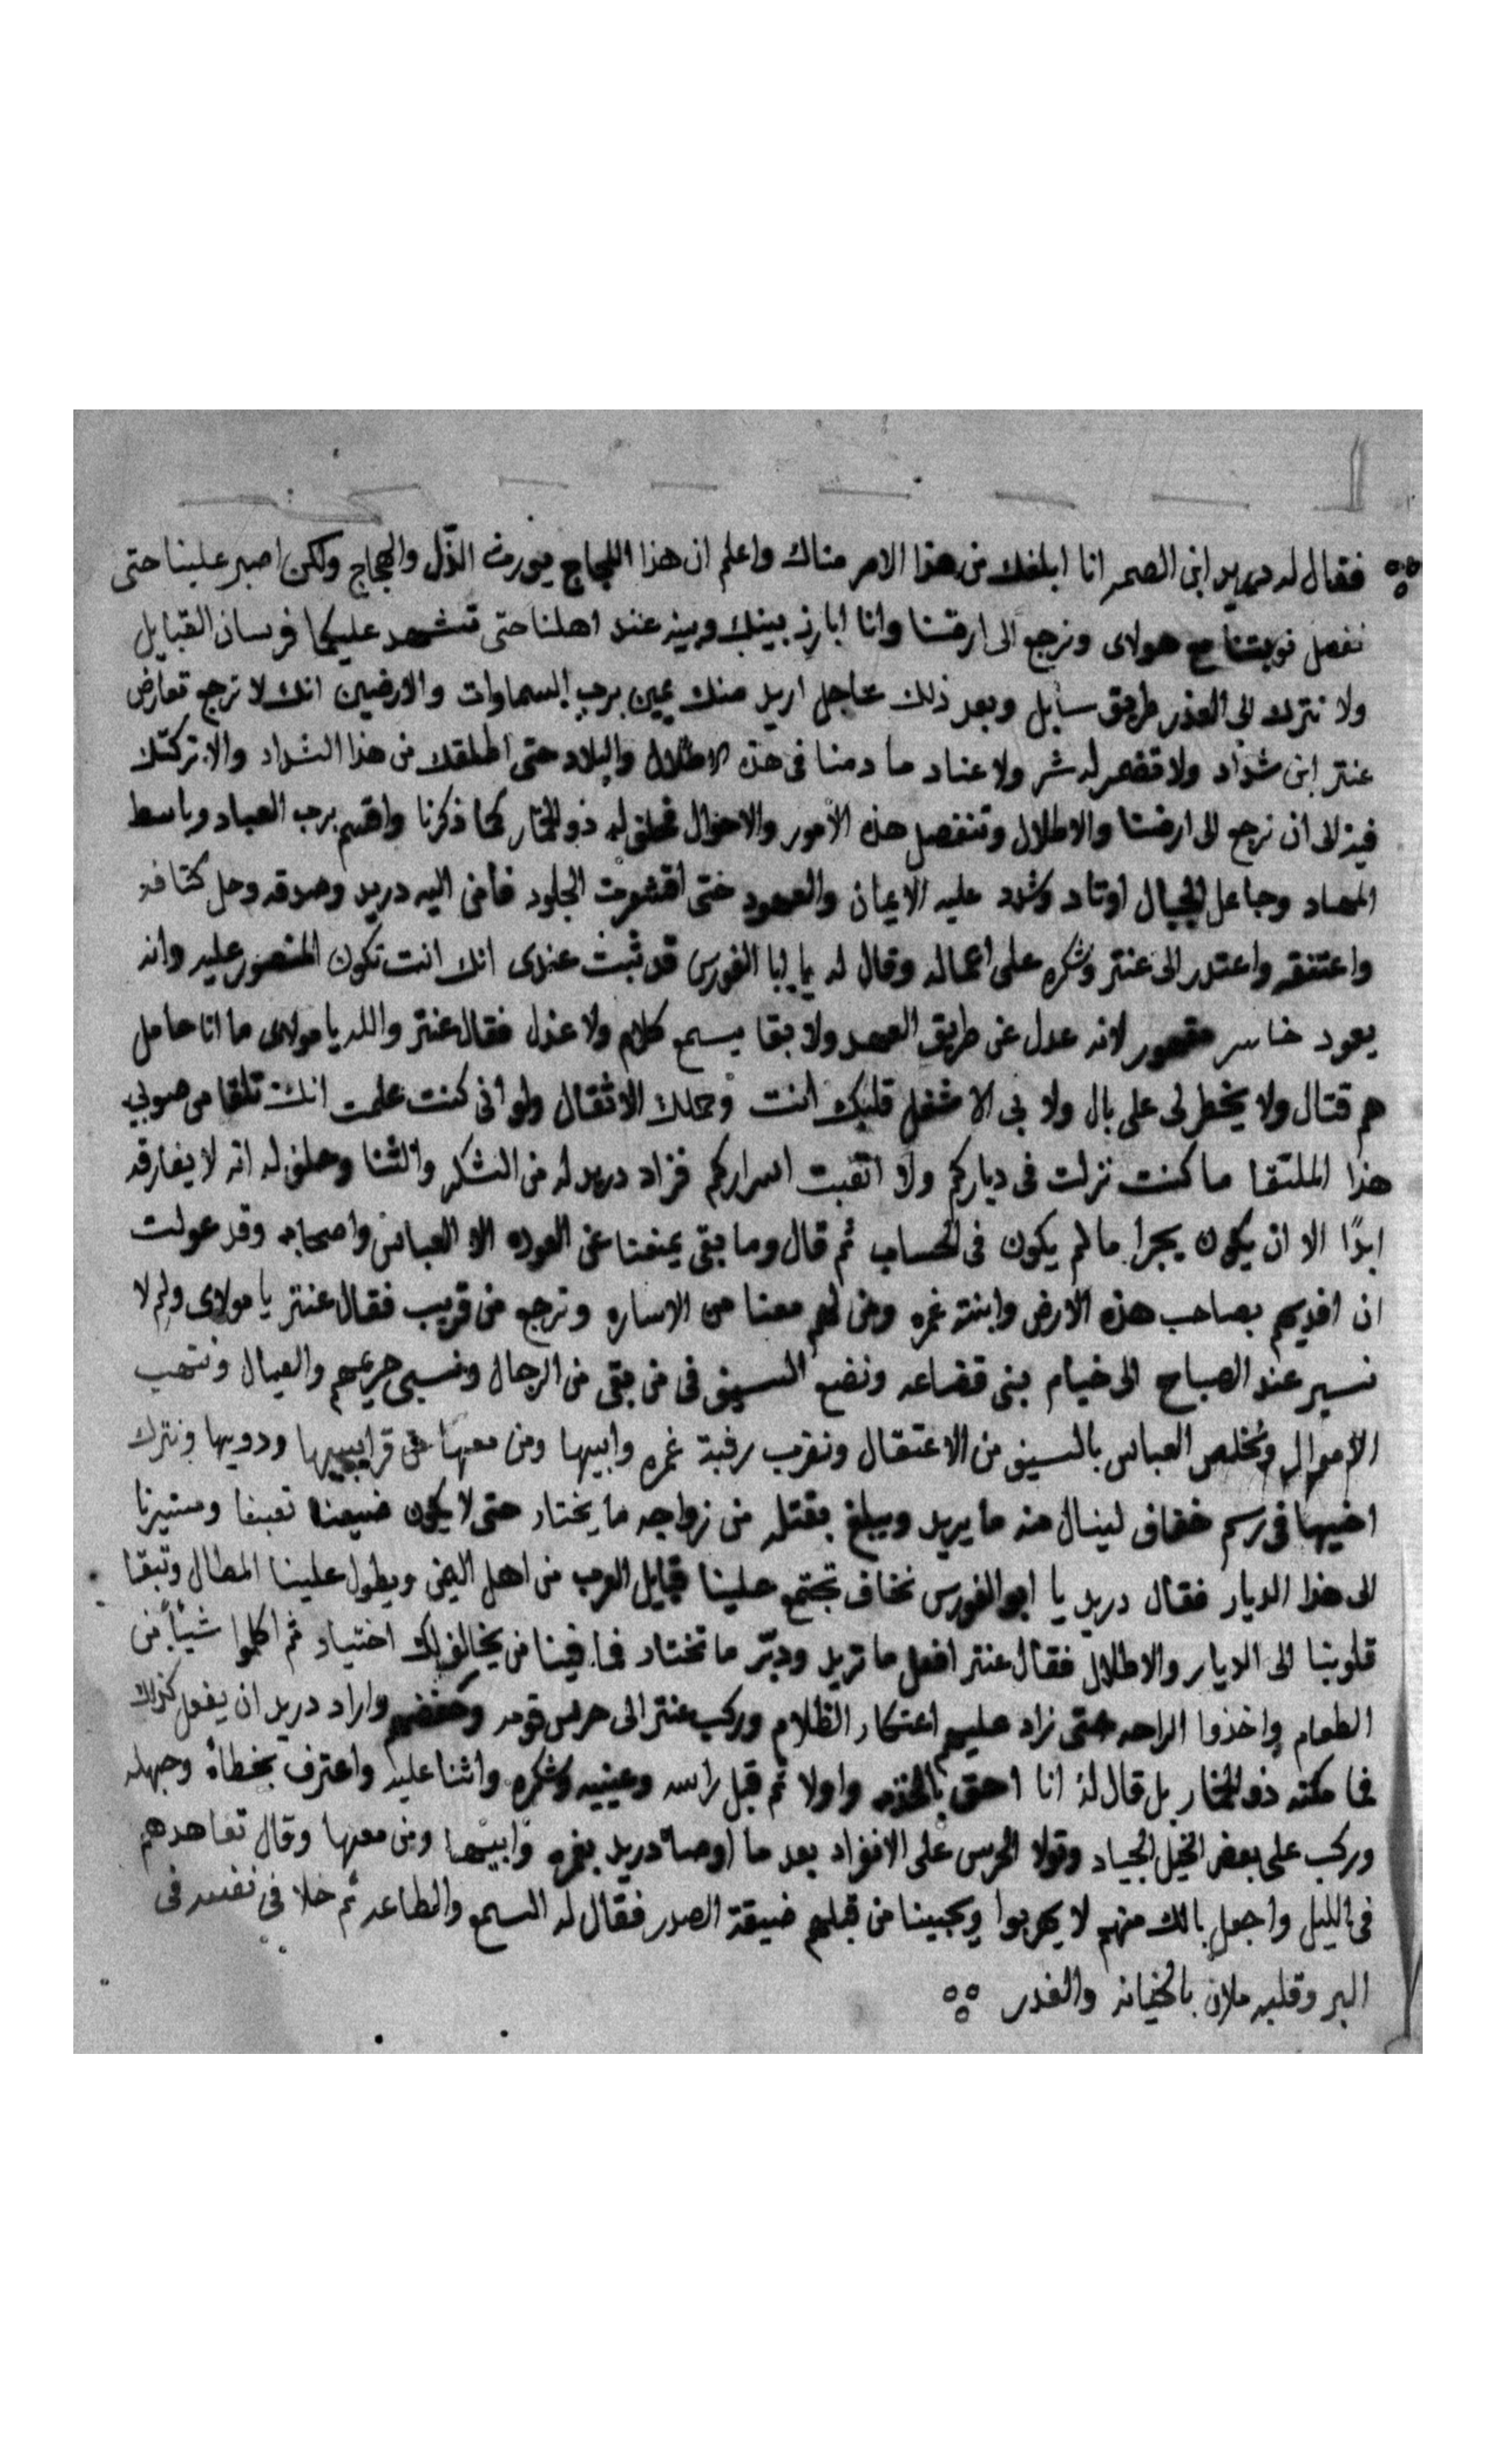 فقال له دريد ابن الصمه انا ابلغك من هذا الامر مناك واعلم ان هذا اللجاج يورث الذّل والحجاج ولكن اصبر علينا حتى
نفصل نوبتنا مع هولاى ونرجع الى ارضنا وانا ابارز بينك وبينه عند اهلنا حتى تشهد عليكما فرسان القبايل
ولا نترك الى العذر طريق سابل وبعد ذلك عاجل اريد منك يمين برب السماوات والارضين انك لا ترجع تعارض
عنتر ابن شداد ولا تضمر له شر ولا عناد ما دمنا فى هذه الاطلال والبلاد حتى اطلقك من هذا الشداد والا تركتك
فيه الى ان نرجع الى ارضنا والاطلال وتنفصل هذه الأمور والاحوال فحلف له ذو الخمار كما ذكرنا واقسم برب العباد وباسط
المهاد وجاعل الجبال اوتاد وشدد عليه الايمان والعهود حتى اقشعرت الجلود فأمن اليه دريد وصدقه وحل كتافه
واعتنقه واعتدر الى عنتر وشكره على اعماله وقال له يا ابا الفورس قد ثبت عندى انك انت تكون المنصور عليه وانه
يعود خاسر مقهور لانه عدل عن طريق العهد ولا بقا يسمع كلام ولا عذل فقال عنتر والله يا مولاى ما انا حامل
هم قتال ولا يخطر لى على بال ولا بى الا شغل قلبك انت وحملك الاثقال ولو انى كنت علمت انك تلقا من صوبي
هذا الملتقا ما كنت نزلت فى دياركم ولا اتعبت اسراركم فزاد دريد له من الشكر والثنا وحلف له انه لا يفارقه
ابدًا الا ان يكون يجرا ما لم يكون فى الحساب ثم قال وما بقى يمنعنا عن العوده الا العباس واصحابه وقد عولت
ان افديهم بصاحب هذه الارض وابنته غمره ومن لهم معنا من الاساره ونرجع من قريب فقال عنتر يا مولاى ولم لا
نسير عند الصباح الى خيام بنى قضاعه ونضع السيف فى من بقى من الرجال ونسبى حريمهم والعيال وننهب
الاموال ونخلص العباس بالسيف من الاعتقال ونضرب رقبة غمره وابيها ومن معها من قرايبيها ودويها ونترك
اخيها فى رسم خفاف لينال منه ما يريد ويبلغ بقتله من زواجه ما يختار حتى لا يكون ضيعنا تعبنا ومسيرنا
الى هذا الديار فقال دريد يا ابو الفورس نخاف تجتمع علينا قبايل العرب من اهل اليمن ويطول علينا المطال وتبقا
قلوبنا الى الديار والاطلال فقال عنتر افعل ما تريد ودبّر ما تختار فما فينا من يخالف لك اختيار ثم اكلوا شيأ من
الطعام واخذوا الراحه حتى زاد عليهم اعتكار الظلام وركب عنتر الى حرس قومه واراد دريد ان يفعل كذلك
فما مكنه ذو الخمار بل قال لهُ انا احق بالخذمه واولا ثم قبل راسه وعينيه وشكره واثنا عليه واعترف بخطأه وجهله
وركب على بعض الخيل الجياد وتولا الحرس على الانفراد بعد ما اوصاه دريد بغمره وابيها ومن معها وقال تعاهدهم
فى الليل واجعل بالك منهم لا يهربوا ويجبينا من قبلهم ضيقة الصدر فقال له السمع والطاعه ثم خلا فى نفسه فى
البر وقلبه ملان بالخيانه والغدر